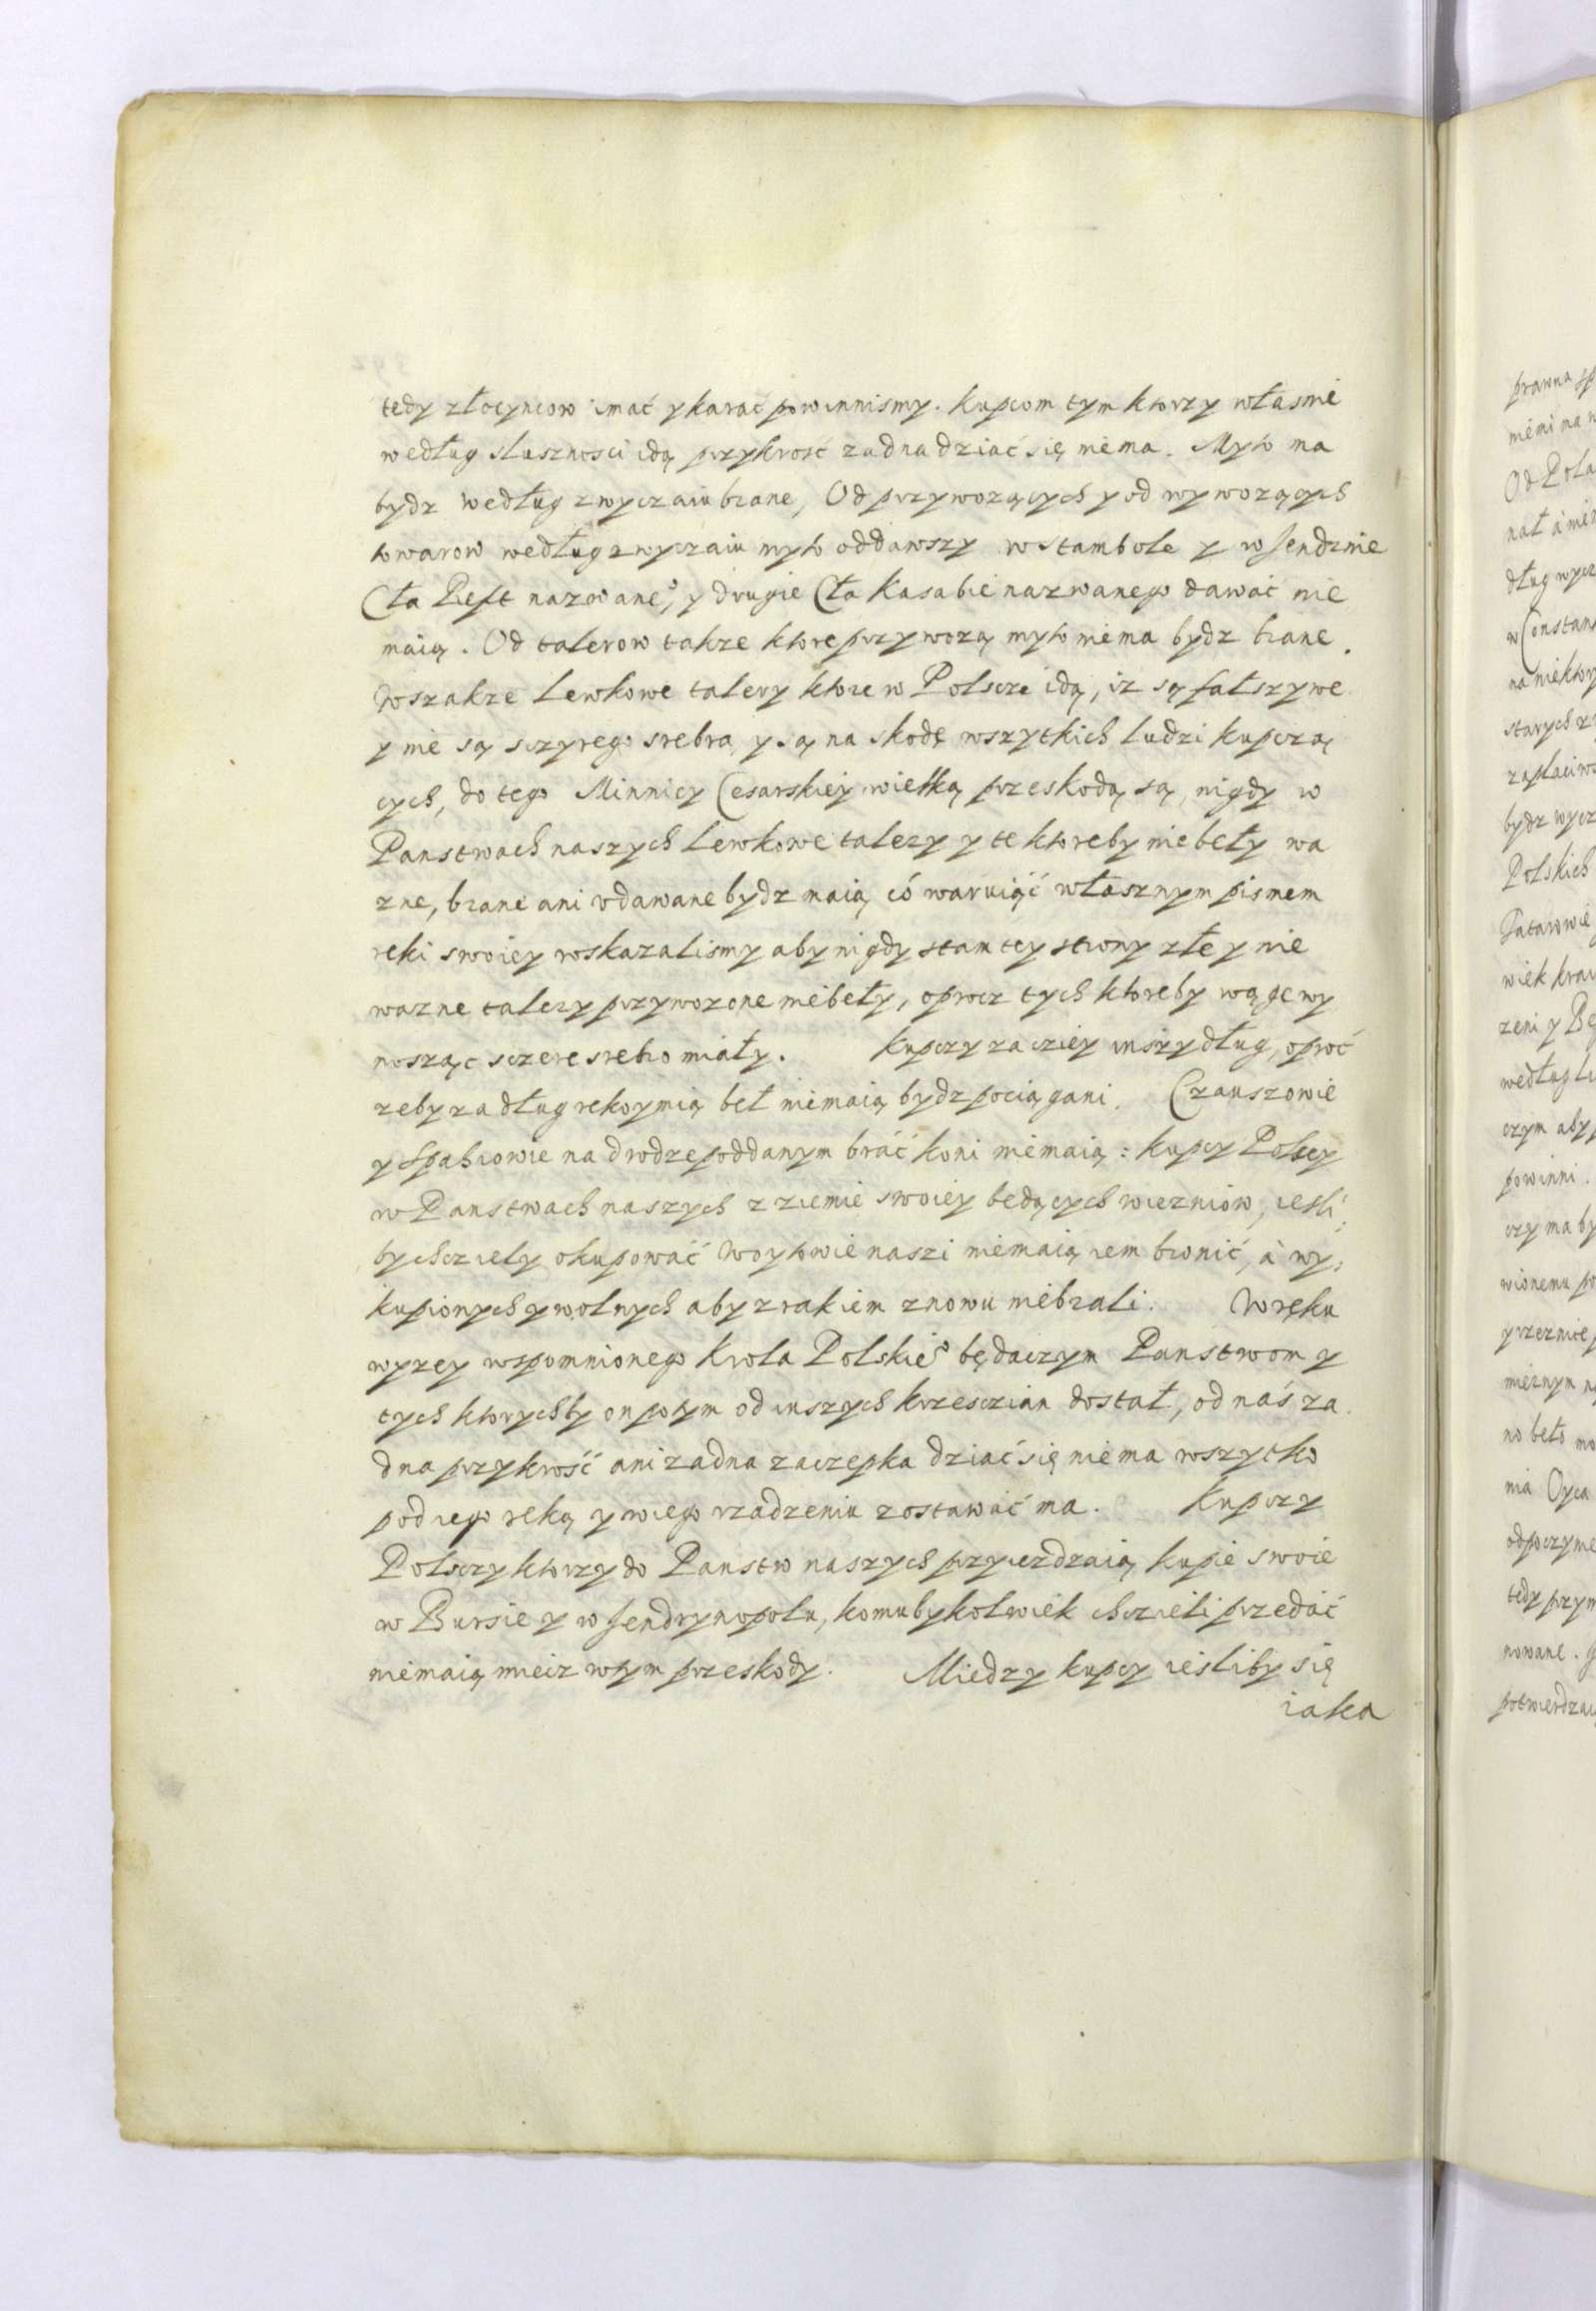 tedy złocyncow imać y karać powinnismy. kupcom tym ktorzy własnie
według slusznosci idą przykrosć zadna dziać się niema. Myto ma
bydz według zwyczaiu brane, Od przyworzących y od wyworzących
towarow według zwyczaiu myto oddawszy w Stambole y w Jendrnie
Cła Reft nazwane°, y drugie Cła Kasabie nazwanego dawać nie
maią. Od talerow takze ktore przyworzą myto niema bydz brane.
Wszakze Lewkowe talery ktore w Polscze idą, iz są fałszywe
y nie są szczyrego srebra y są na skodę wszytkich ludzi kupczą
cych, do tego Minnicy Cesarskiey wielką przeskodą są, nigdy w
Panstwach naszych Lewkowe talery y te ktoreby niebeły wa
zne, brane ani vdawane bydz maią, có waruiąć własznym pismem
reki swoiey wskazalismy aby nigdy stamtey strony złe y nie
wazne talery przyworzone niebeły, oprocz tych ktoreby wągę wy
nosząc sczere srebro miały. Kupczy za cziey inszy dług, oproć
zeby za dług rekoymią beł niemaią bydz pociągani. Czauszowie
y Spahiowie na drodze poddanym bráć koni niemaią: kupcy Polscy
w Panstwach naszych z ziemie swoiey będących wiezniów, iesli,
by chcziely okupować Woytowie naszi niemaią iem bronić, à wy:
kupionych y wolnych aby zrakiem znowu niebrali. W ręku
wyzey wspomnionego Krola Polskie° będaczym Panstwom y
tych ktorychby on potym od inszych krzesczian dostał, od nas za
dna przykrość ani zadna zaczepka dziać się niema wszytko
pod iego reką y w iego rzadzeniu zostawać ma. Kupczy
Polsczy ktorzy do Panstw naszych przyiezdzaią kupie swoie
w Bursie y w Jendrynopolu, komubykolwiek chczieli przedać
niemaią mieiz wtym przeskody. Miedzy kupcy iesliby się
iaka
prawna
Od Pola
starych
Polskich
wiek
zeni y
według
powinni.
czy ma by
wionemu po
no beło
nia Oyca
tedy przym
nowane.
potwierdzai